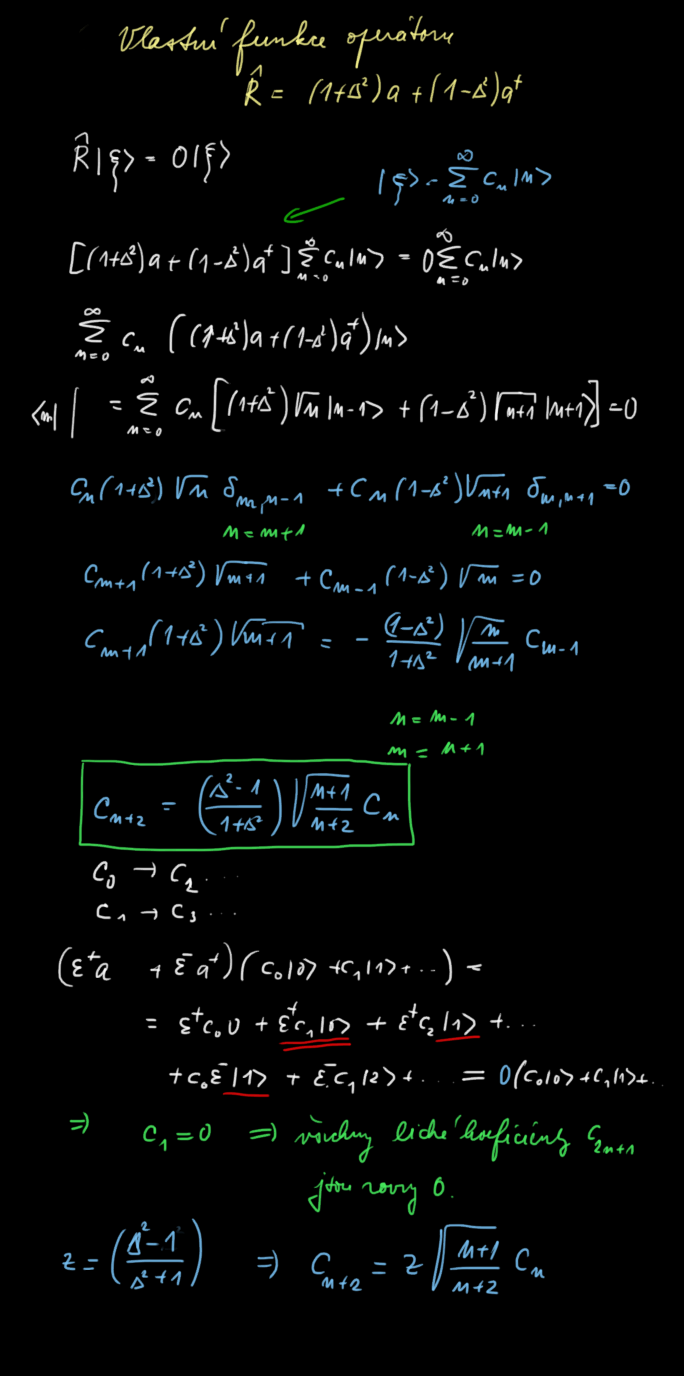 Vlastní funkce operátoru
R̂ = (1+Δ²)a + (1-Δ²)a⁺
R̂|ξ> = 0|ξ>
|ξ> = ∑_{n=0}^{∞} C_n|n>
[(1+Δ²)a + (1-Δ²)a⁺] ∑_{n=0}^{∞} C_n|n> = 0 ∑_{n=0}^{∞} C_n|n>
∑_{n=0}^{∞} C_n ((1+Δ²)a + (1-Δ²)a⁺)|n>
<m| | = ∑_{n=0}^{∞} C_n [(1+Δ²)√n |n-1> + (1-Δ²)√(n+1) |n+1>] = 0
C_n(1+Δ²)√n δ_{m,n-1} + C_n(1-Δ²)√(n+1) δ_{m,n+1} = 0
n = m+1 n = m-1
C_{m+1}(1+Δ²)√(m+1) + C_{m-1}(1-Δ²)√m = 0
C_{m+1}(1+Δ²)√(m+1) = - (1-Δ²)/(1+Δ²) √(m/(m+1)) C_{m-1}
n = m-1
m = n+1
C_{n+2} = ((Δ²-1)/(1+Δ²)) √((n+1)/(n+2)) C_n
C₀ → C₂ ...
C₁ → C₃ ...
(ε⁺a + ε⁻a⁺)(C₀|0> + C₁|1> + ..) =
= ε⁺C₀0 + ε⁺C₁|0> + ε⁺C₂|1> + ...
+ C₀ε⁻|1> + ε⁻C₁|2> + ... = 0(C₀|0> + C₁|1> + ..
⇒ C₁ = 0 ⇒ všechny liché koeficienty C_{2n+1}
jsou rovny 0.
z = ((Δ²-1)/(Δ²+1)) ⇒ C_{n+2} = z √((n+1)/(n+2)) C_n